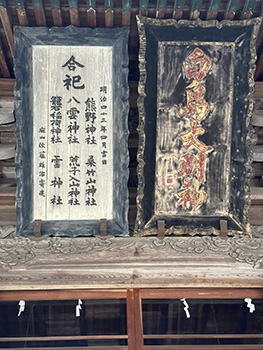 白鳥大明神
明治四十三年四月吉日
合祀
熊野神社
桑竹山神社
八雲神社
荒子入山神社
稲荷神社
雷神社